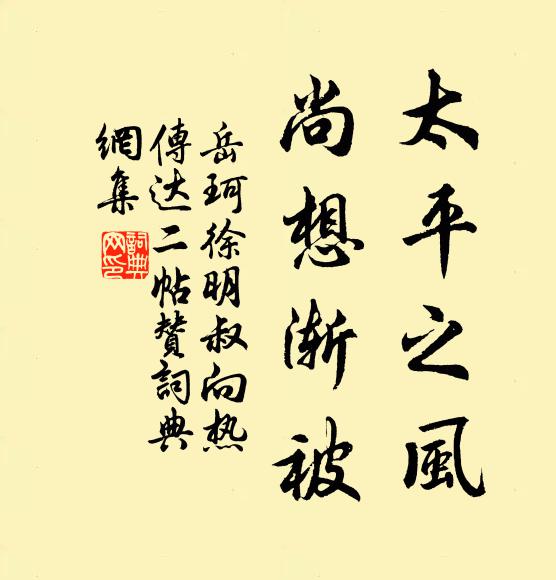 太平之風
尚想渐被
岳珂徐明叔向热
傳达二帖赞詞典
網集
詞典
网印